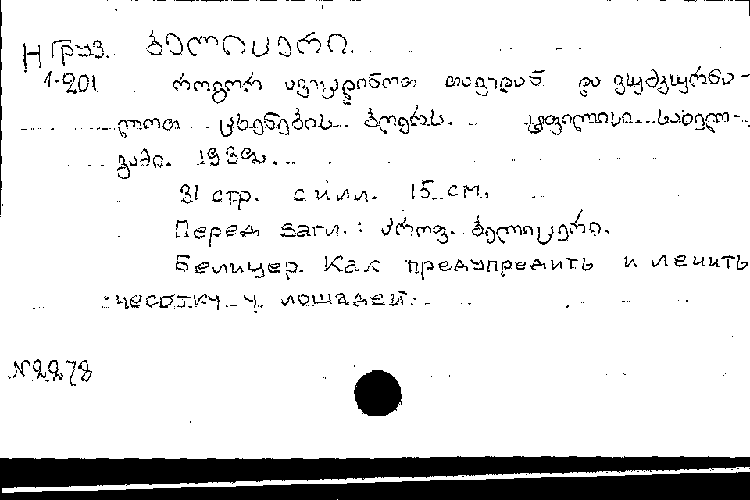 Н Груз. ბელიცერი.
1-201 როგორ ავიცდინოთ თავიდან და ვსწკურნა-
ლოთ ცხენების ბღერს. ტფილისი. სახელ-
გამი. 193
31 стр. с илл. 15 см.
Перед загл.: პროფ. ბელიცერი.
Белицер. Как предупредить и лечить
чесотку у лошадей.
N 2278